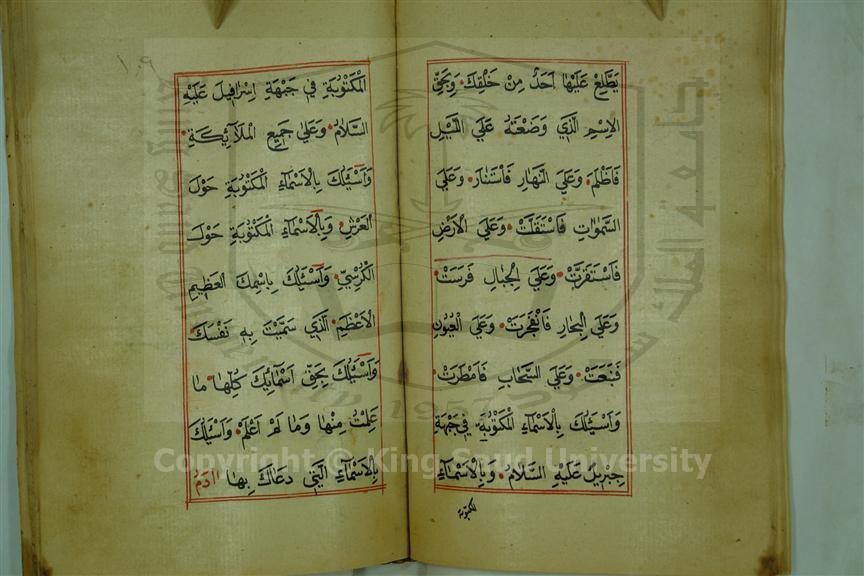 يَطَّلِعْ عَلَيْهَا اَحَدٌ مِنْ خَلْقِكَ وَبِحَقِّ
الاِسْمِ الَّذِي وَضَعْتَهُ عَلَي اللَّيْلِ
فَاَظْلَمَ وَعَلَي النَّهَارِ فَاسْتَنَارَ وَعَلَي
السَّمٰوَاتِ فَاسْتَقَلَّتْ وَعَلَي الاَرْضِ
فَاسْتَقَرَّتْ وَعَلَي الْجِبَالِ فَرَسَتْ
وَعَلَي الْبِحَارِ فَانْفَجَرَتْ وَعَلَي الْعُيُونِ
فَنَبَعَتْ وَعَلَي السَّحَابِ فَاَمْطَرَتْ
وَاَسْئَلُكَ بِالْاَسْمَآءِ الْمَكْتُوبَةِ فِي جَبْهَةِ
جِبْرِيلَ عَلَيْهِ السَّلَامُ وَبِالْاَسْمَآءِ
المكتوبة
١٩
الْمَكْتُوبَةِ فِي جَبْهَةِ اِسْرَافِيلَ عَلَيْهِ
السَّلَامُ وَعَلَي جَمِيعِ الْمَلَآئِكَةِ
وَاَسْئَلُكَ بِالْاَسْمَآءِ الْمَكْتُوبَةِ حَوْلَ
الْعَرْشِ وَبِالْاَسْمَآءِ الْمَكْتُوبَةِ حَوْلَ
الْكُرْسِيِّ وَاَسْئَلُكَ بِاسْمِكَ الْعَظِيمِ
الْاَعْظَمِ الَّذِي سَمَّيْتَ بِهِ نَفْسَكَ
وَاَسْئَلُكَ بِحَقِّ اَسْمَآئِكَ كُلِّهَا مَا
عَلِمْتُ مِنْهَا وَمَا لَمْ اَعْلَمْ وَاَسْئَلُكَ
بِالْاَسْمَآءِ الَّتِي دَعَاكَ بِهَا اٰدَمُ
جامعة الملك سعود
1957
Copyright © King Saud University